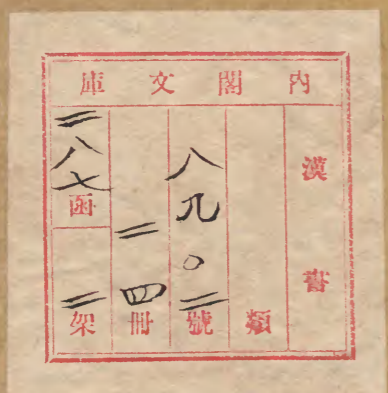 内閣文庫
漢書
類
八九〇二號
二四冊
二八七函
二架